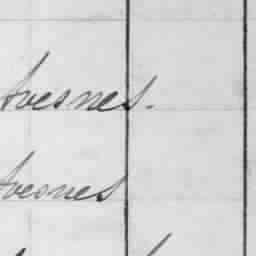 Avesnes.
Avesnes